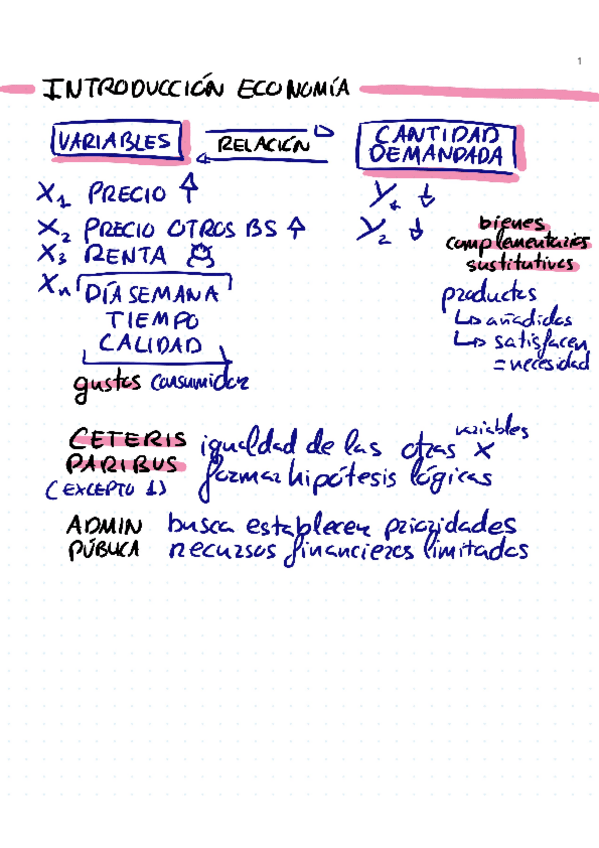 1
INTRODUCCIÓN ECONOMÍA
VARIABLES RELACIÓN CANTIDAD DEMANDADA
X1 PRECIO ↑ Y1 ↓
X2 PRECIO OTROS BS ↑ Y2 ↓
X3 RENTA
Xn DÍA SEMANA
TIEMPO
CALIDAD
gustos consumidor
bienes
complementarios
sustitutivos
productos
↳ añadidos
↳ satisfacen
= necesidad
CETERIS PARIBUS
(EXCEPTO 1)
igualdad de las otras variables X
formar hipótesis lógicas
ADMIN PÚBLICA
busca establecer prioridades
recursos financieros limitados